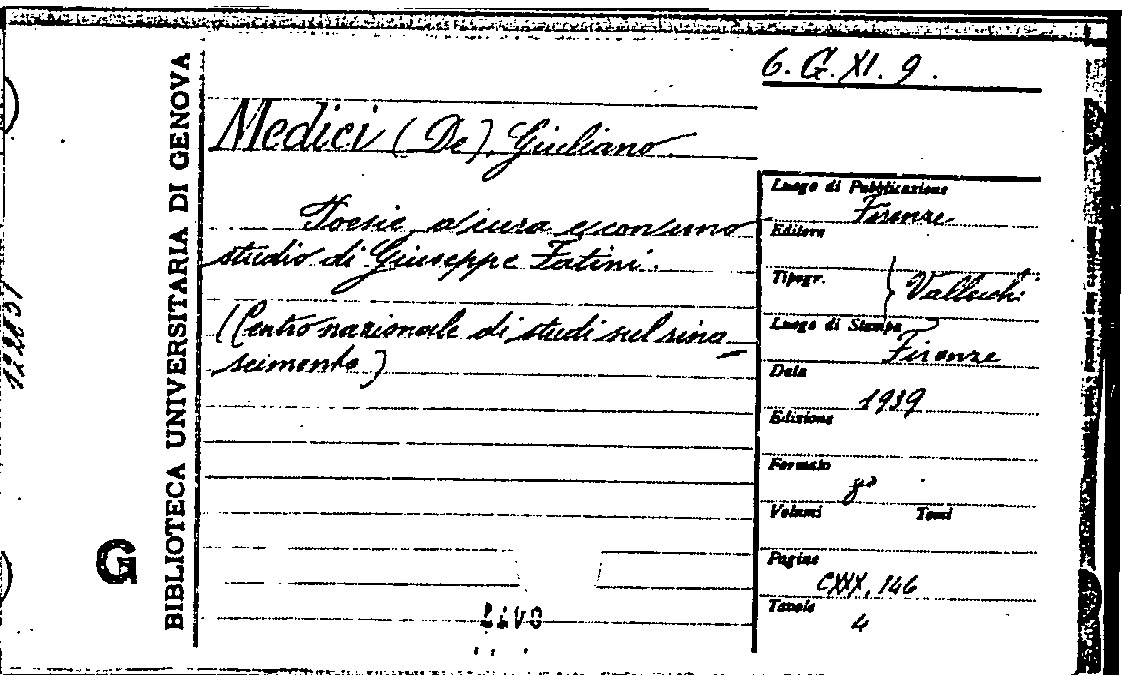 6. G. XI. 9.
BIBLIOTECA UNIVERSITARIA DI GENOVA
G
Medici (De), Giuliano.
Poesie, a cura e con uno
studio di Giuseppe Fatini.
(Centro nazionale di studi sul rina
scimento)
Luogo di Pubblicazione
Firenze
Editore
Tipogr.
Vallecchi
Luogo di Stampa
Firenze
Data
1939
Edizione
Formato
8º
Volumi Tomi
Pagine
CXXX, 146
Tavole
4